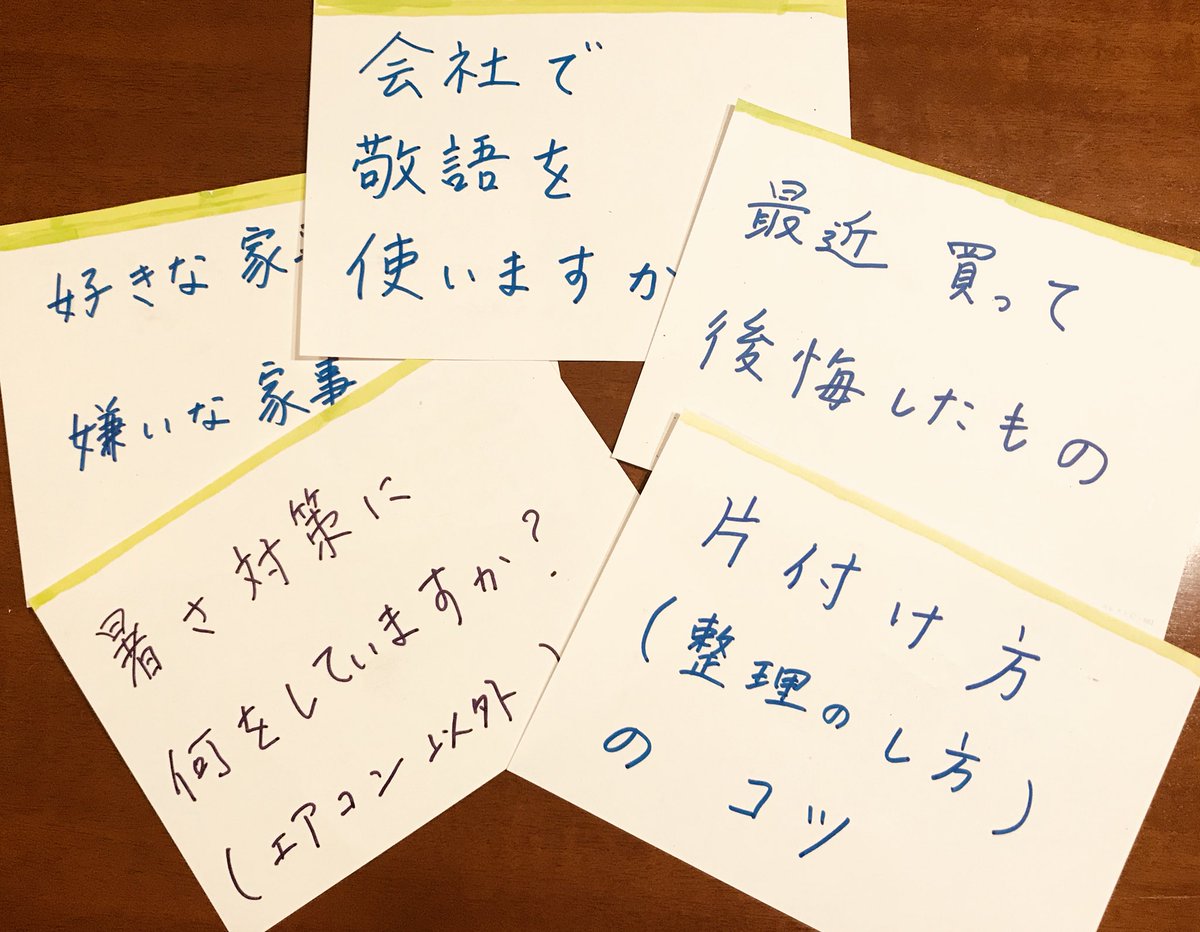 会社で
敬語を
使いますか
最近 買って
後悔したもの
好きな 家事
嫌いな 家事
暑さ対策に
何をしていますか?
(エアコン以外)
片付け方
(整理のし方)
のコツ